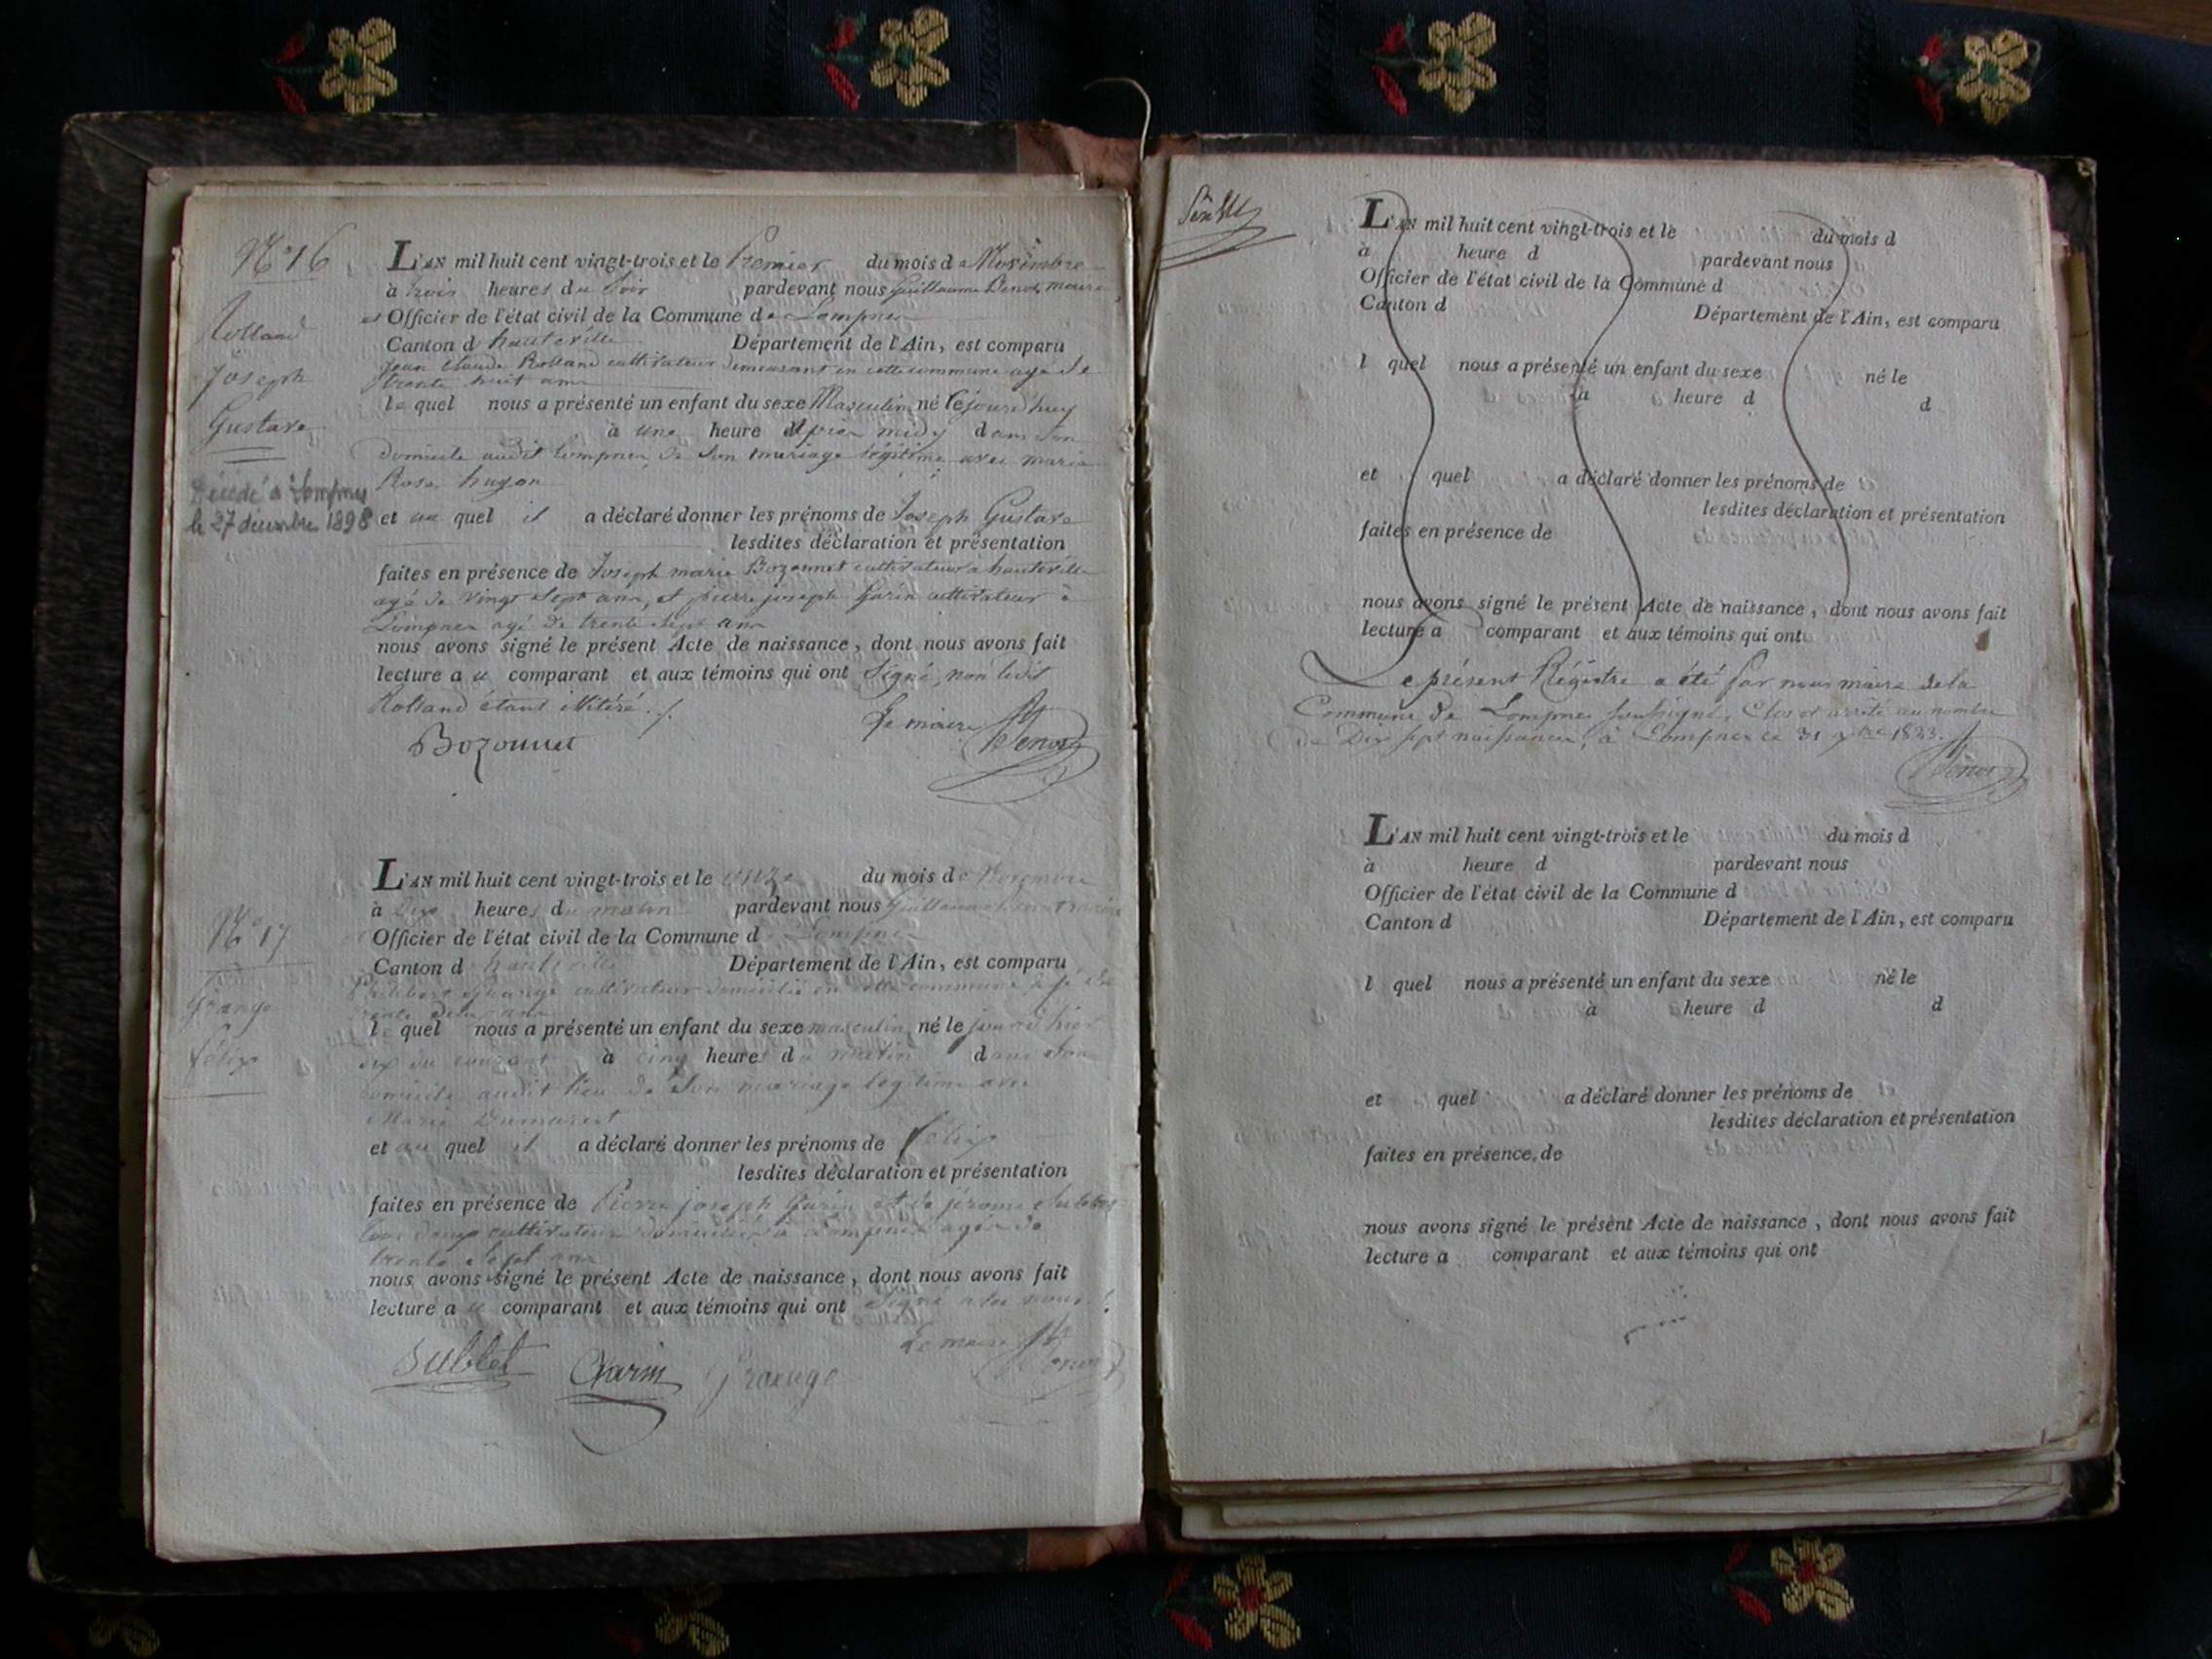 N° 16
Rolland
Joseph
Gustave
Décédé à Lompnes
le 27 décembre 1898
L'AN mil huit cent vingt-trois et le Premier du mois de Novembre
à trois heures du Soir pardevant nous Guillaume Benoz, maire
et Officier de l'état civil de la Commune de Lompnes
Canton d hauteville Département de l'Ain, est comparu
Jean Claude Rolland cultivateur demeurant en cette commune agé de
trente huit ans
le quel nous a présenté un enfant du sexe Masculin né Cejourd'huy
à une heure Après midy dans son
domicile audit Lompnes, de Son mariage légitime avec marie
Rose hugon
et au quel il a déclaré donner les prénoms de Joseph Gustave
lesdites déclaration et présentation
faites en présence de Joseph marie Bozonnet cultivateur à hauteville
agé de vingt Sept ans, et pierre joseph Garin cultivateur à
Lompnes agé de trente Sept ans
nous avons signé le présent Acte de naissance, dont nous avons fait
lecture a u comparant et aux témoins qui ont Signé, non ledit
Rolland étant illitéré ./.
Bozonnet
Le maire
Benoz
N° 17
Grange
félix
L'AN mil huit cent vingt-trois et le onze du mois de Novembre
à Dix heures du matin pardevant nous Guillaume maire
Officier de l'état civil de la Commune d Lompnes
Canton d hauteville Département de l'Ain, est comparu
Grange cultivateur domicilié en cette commune agé de
trente deux ans
le quel nous a présenté un enfant du sexe masculin né le jour d'hier
dix du courant à cinq heures du matin dans Son
domicile audit lieu de Son mariage légitime avec
Marie Dumarest
et au quel il a déclaré donner les prénoms de félix
lesdites déclaration et présentation
faites en présence de Pierre joseph Garin et de jérome Sublet
tous deux cultivateurs domiciliés à Lompnes agés de
trente Sept ans
nous avons signé le présent Acte de naissance, dont nous avons fait
lecture a u comparant et aux témoins qui ont Signé avec nous ./.
Le maire
Sublet Garin Grange Benoz
L'AN mil huit cent vingt-trois et le du mois d
à heure d pardevant nous
Officier de l'état civil de la Commune d
Canton d Département de l'Ain, est comparu
l quel nous a présenté un enfant du sexe né le
à heure d d
et quel a déclaré donner les prénoms de
lesdites déclaration et présentation
faites en présence de
nous avons signé le présent Acte de naissance, dont nous avons fait
lecture a comparant et aux témoins qui ont
Le présent Régistre a été par nous maire de la
Commune de Lompnes Soussigné, Clos et arrêté au nombre
de Dix Sept naissances, à Lompnes ce 31 1823.
Benoz
L'AN mil huit cent vingt-trois et le du mois d
à heure d pardevant nous
Officier de l'état civil de la Commune d
Canton d Département de l'Ain, est comparu
l quel nous a présenté un enfant du sexe né le
à heure d d
et quel a déclaré donner les prénoms de
lesdites déclaration et présentation
faites en présence de
nous avons signé le présent Acte de naissance, dont nous avons fait
lecture a comparant et aux témoins qui ont